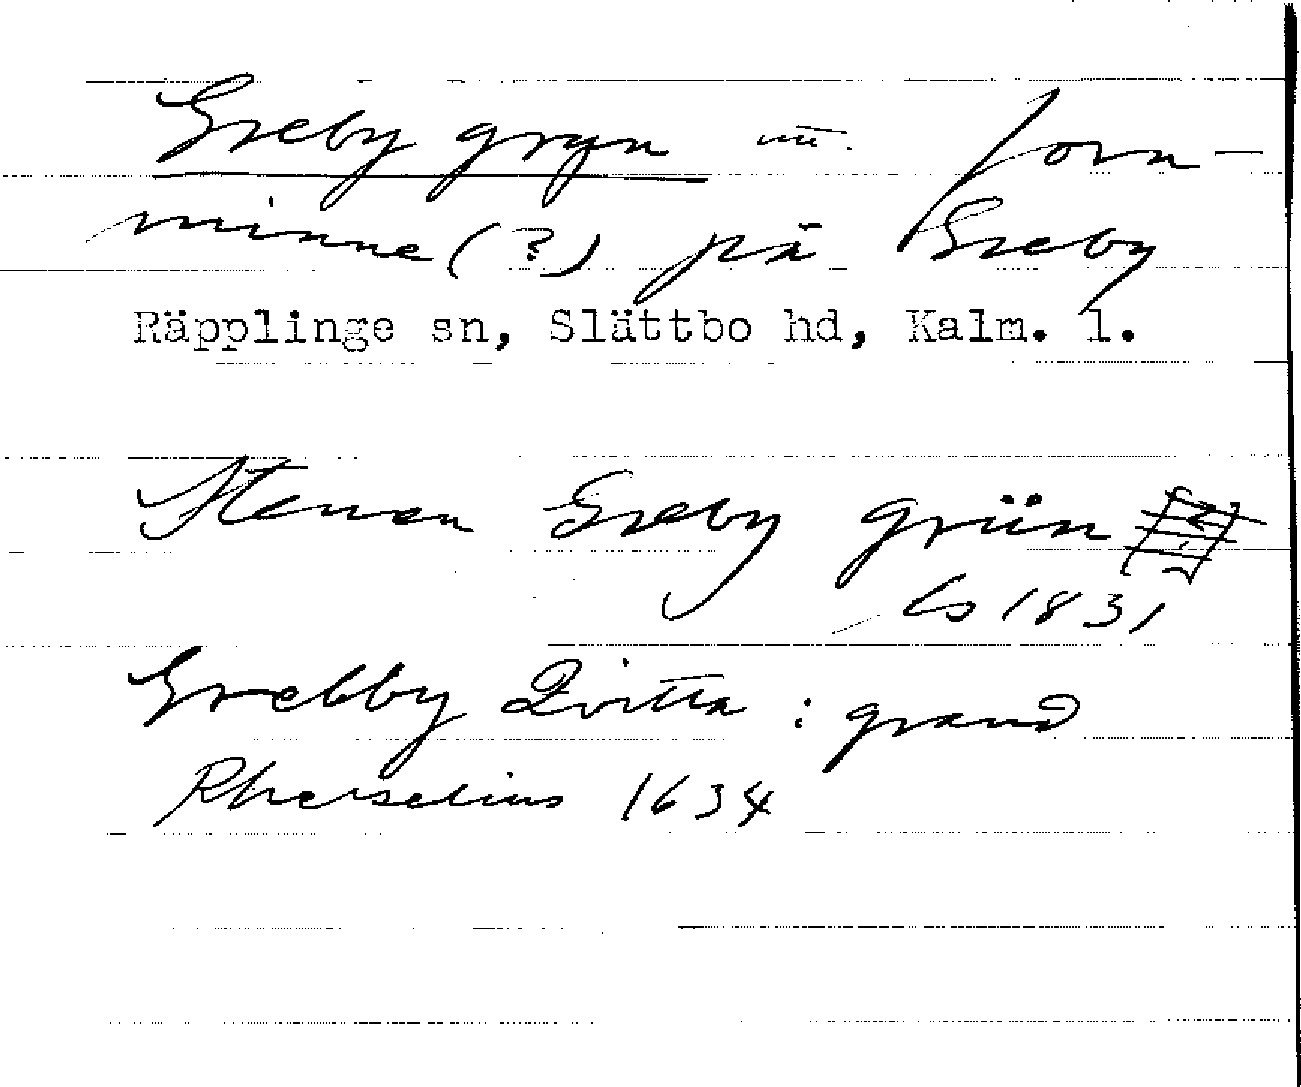 Greby gryn m. forn-
minne (?) på Greby
Räpplinge sn, Slättbo hd, Kalm. l.
Stenen Greby grün
Ls 1831
Grebby Qvitta : grand
Rhezelius 1634